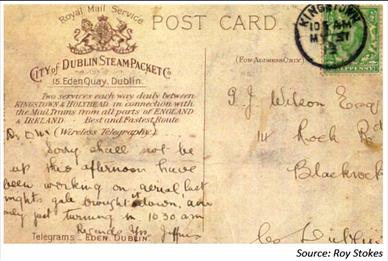 Royal Mail Service
POST CARD.
CITY OF DUBLIN STEAM PACKET Co
15. Eden Quay. Dublin.
(FOR ADDRESS ONLY)
KINGSTOWN
10 AM
Two services each way daily between
KINGSTOWN & HOLYHEAD in connection with
the Mail Trains from all parts of ENGLAND
& IRELAND Best and Fastest Route
(Wireless Telegraphy)
Sorry shall not be
up this afternoon have
been working on aerial last
nights gale brought it down, am
only just turning in 10 30 am
Regards
Telegrams EDEN. DUBLIN.
J. J. Wilson Esq
14 Rock Rd
Blackrock
Co Dublin
Source: Roy Stokes